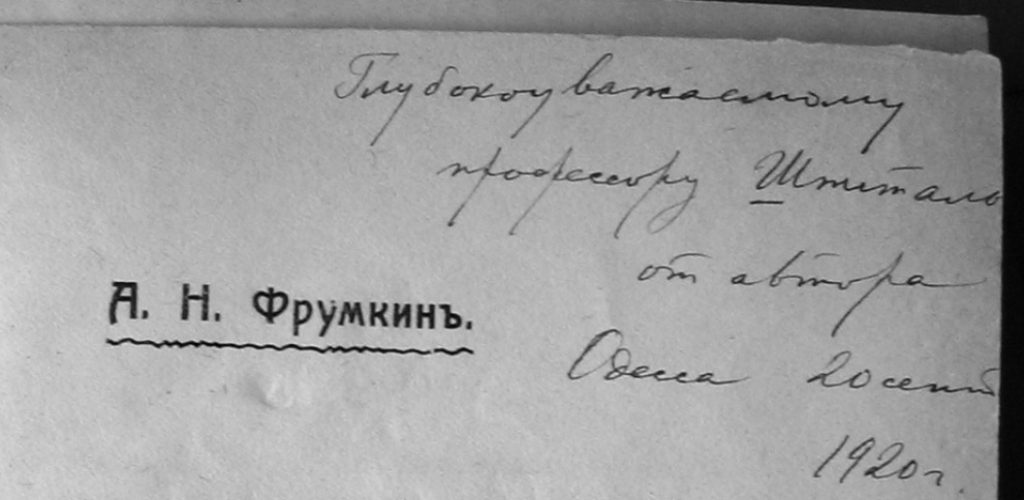 Глубокоуважаемому
профессору
от автора
А. Н. Фрумкинъ.
Одесса 20 сент
1920 г.